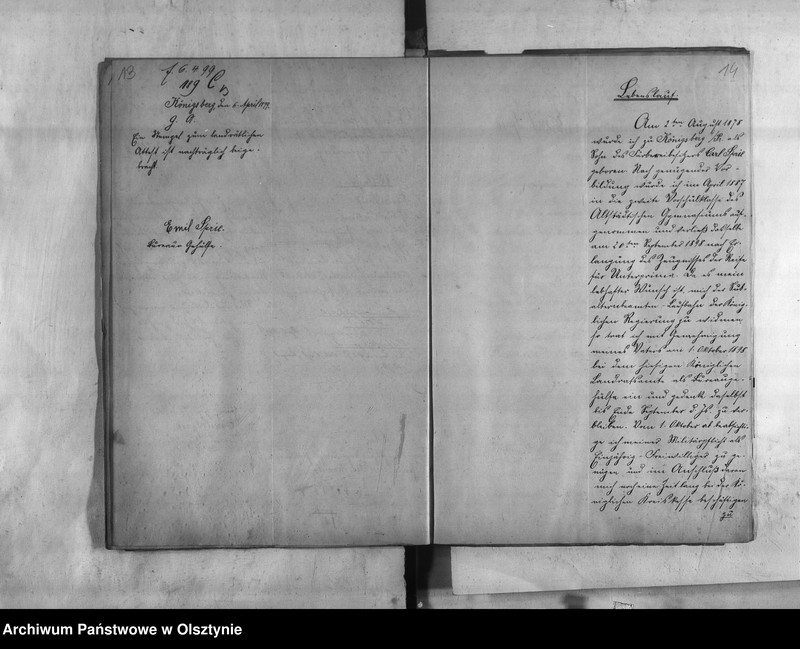 13
f 6. 4 99
119 C
Königsberg den 6. April 1899.
g. A.
Ein Stempel zum landrätlichen
Attest ist nachträglich beige-
bracht.
Emil Spril.
Bureau-Gehülfe.
14
Lebenslauf.
Am 2ten August 1878
wurde ich zu Königsberg i/Pr. als
Sohn des Färbereibesitzers Carl Spril
geboren. Nach genügender Vor-
bildung wurde ich im April 1887
in die zweite Vorschulklasse des
Altstädtischen Gymnasiums auf-
genommen und verließ dasselbe
am 20ten September 1898 nach Er-
langung des Zeugnisses der Reife
für Unterprima. Da es mein
lebhafter Wunsch ist, mich der Sub-
alternbeamten-Laufbahn der König-
lichen Regierung zu widmen,
so trat ich mit Genehmigung
meines Vaters am 1. Oktober 1898
bei dem hiesigen Königlichen
Landratsamte als Bureauge-
hülfe ein und gedenke daselbst
bis Ende September d. Js. zu ver-
bleiben. Vom 1. Oktober ab beabsichti-
ge ich meiner Militärpflicht als
Einjährig-Freiwilliger zu ge-
nügen und im Anschluß daran
mich noch eine Zeit lang bei der Kö-
niglichen Kreiskasse beschäftigen
zu
Archiwum Państwowe w Olsztynie